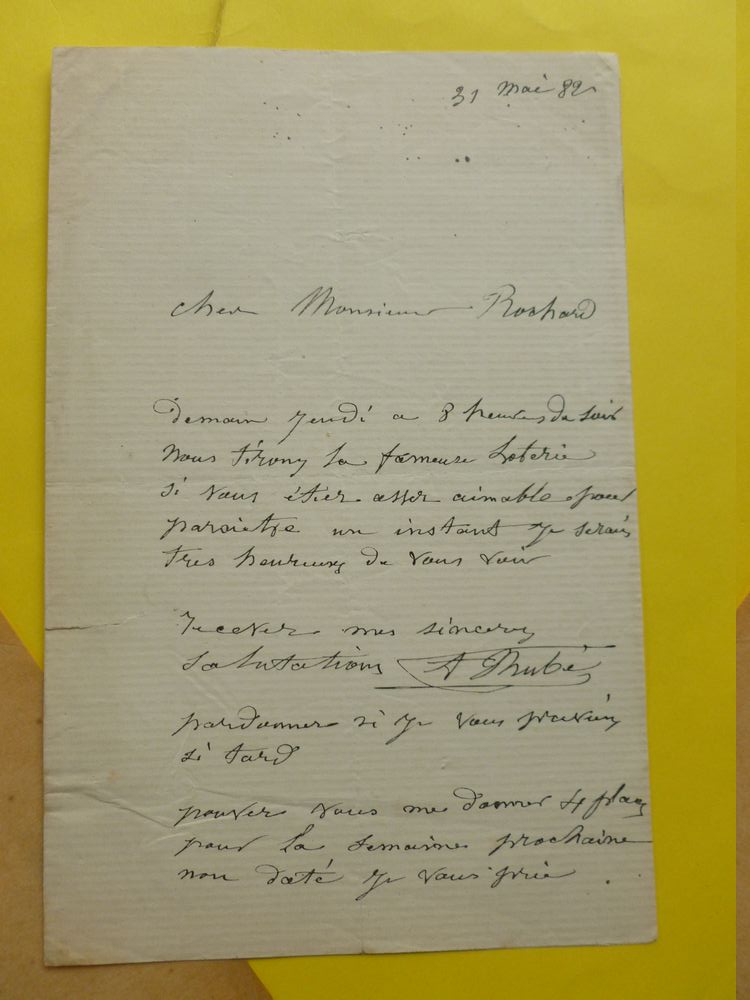 31 Mai 82
cher Monsieur Rochard
Demain Jeudi a 8 heures du soir
nous tirons la fameuse Loterie
si vous étier asser aimable pour
paraietre un instant je serais
tres heureux de vous voir
recever mes sinceres
salutations A Thubé
pardonner si je vous previens
si tard
pouver vous me donner 4 places
pour la semaine prochaine
non daté je vous prie .